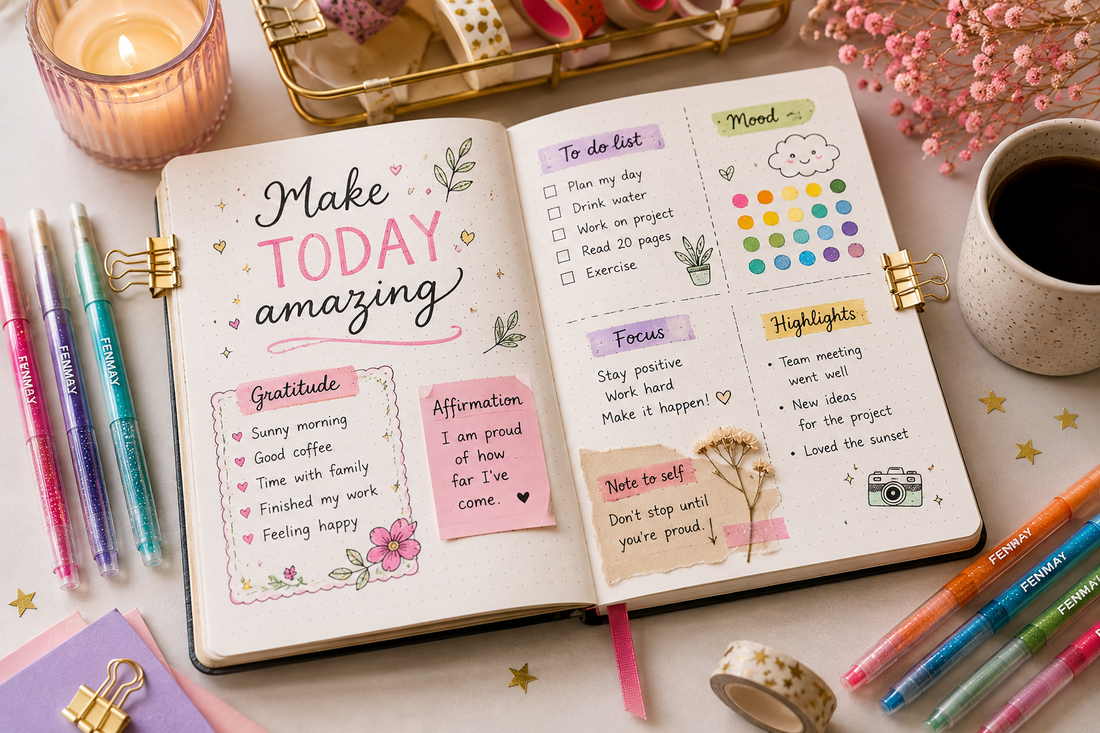 Make
TODAY
amazing
Gratitude
Sunny morning
Good coffee
Time with family
Finished my work
Feeling happy
Affirmation
I am proud
of how
far I've
come.
To do list
Plan my day
Drink water
Work on project
Read 20 pages
Exercise
Mood
Focus
Stay positive
Work hard
Make it happen!
Highlights
• Team meeting
went well
• New ideas
for the project
• Loved the sunset
Note to self
Don't stop until
you're proud.
FENMAY
FENMAY
FENMAY
FENMAY
FENMAY
FENMAY
FENMAY